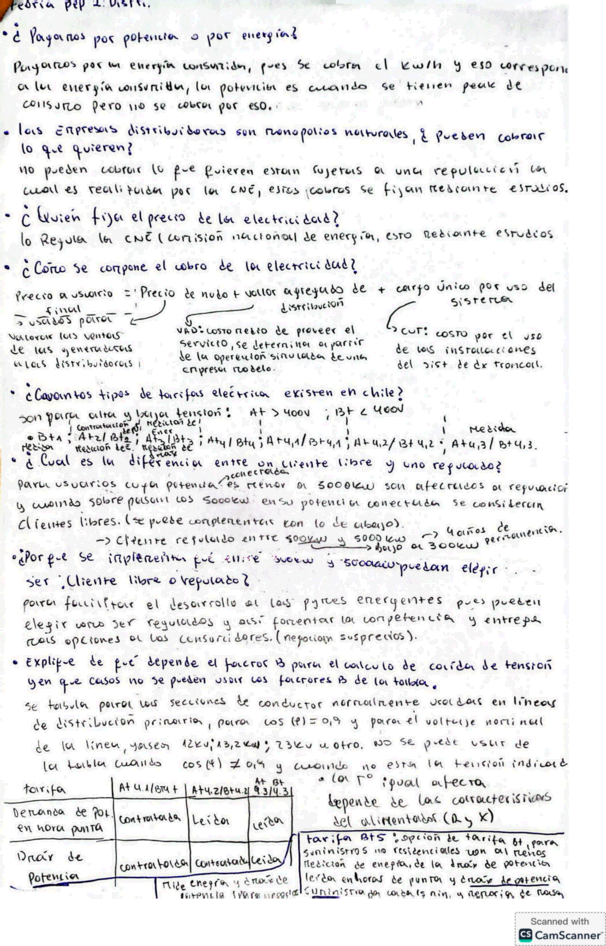 teoría pep 1: Distri.
• ¿ Pagamos por potencia o por energía?
Pagamos por la energía consumida, pues se cobra el kw/h y eso corresponde
a la energía consumida, la potencia es cuando se tienen peak de
consumo pero no se cobra por eso.
• las Empresas distribuidoras son monopolios naturales, ¿ pueden cobrar
lo que quieren?
no pueden cobrar lo que quieren estan sujetas a una regulación la
cual es realizada por la CNE, estos cobros se fijan mediante estudios.
• ¿ Quién fija el precio de la electricidad?
lo Regula la CNE (comisión nacional de energía, esto mediante estudios
• ¿ Cómo se compone el cobro de la electricidad?
Precio a usuario final = Precio de nudo + valor agregado de distribución + cargo único por uso del sistema
→ usados para valorar las ventas de las generadoras a las distribuidoras
VAD: costo medio de proveer el servicio, se determina a partir de la operación simulada de una empresa modelo.
→ CUT: costo por el uso de las instalaciones del sist de tx troncal.
• ¿ Cuantos tipos de tarifas eléctrica existen en chile?
son para alta y baja tensión: At > 400V ; Bt < 400V
• Bt1 ; At2/Bt2 ; At3/Bt3 ; At4/Bt4 ; At4,1/Bt4,1 ; At4.2/Bt4.2 ; At4,3/Bt4,3.
• ¿ Cual es la diferencia entre un cliente libre y uno regulado?
para usuarios cuya potencia conectada es menor a 5000kw son afectados a regulación
y cuando sobre pasan los 5000kw en su potencia conectada se consideran
clientes libres. (se puede complementar con lo de abajo).
→ Cliente regulado entre 500kw y 5000kw → 4 años de permanencia.
→ bajo a 300kw
• ¿Por que se implementa que entre 500kw y 5000kw puedan elegir
ser cliente libre o regulado?
para facilitar el desarrollo a las pymes emergentes pues pueden
elegir como ser regulados y así fomentar la competencia y entrega
mas opciones a los consumidores. (negocian sus precios).
• Explique de qué depende el factor B para el calculo de caída de tensión
y en que casos no se pueden usar los factores B de la tabla.
se tabula para las secciones de conductor normalmente usadas en líneas
de distribución primaria, para cos (φ) = 0,9 y para el voltaje nominal
de la linea, ya sea 12kv; 13,2kv; 23kv u otro. No se puede usar de
la tabla cuando cos(φ) ≠ 0,9 y cuando no esta la tensión indicada
• la T° igual afecta
depende de las caracteristicas
del alimentador (R y X)
tarifa | At4.1/Bt4.1 | At4.2/Bt4.2 | At 4.3/ Bt 4.3
Demanda de Pot. en hora punta | contratada | Leída | Leída
Dmáx de Potencia | contratada | contratada | Leída
tarifa Bt5: opción de tarifa bt, para
suministros no residenciales con al menos
medición de energía, de la dmáx de potencia
leída en horas de punta y dmáx de potencia
suministrada
Mide energía y dmáx de